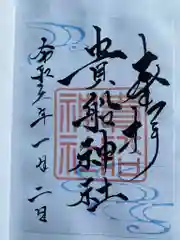 奉拝
貴船神社
令和 年一月二日
貴船
神社